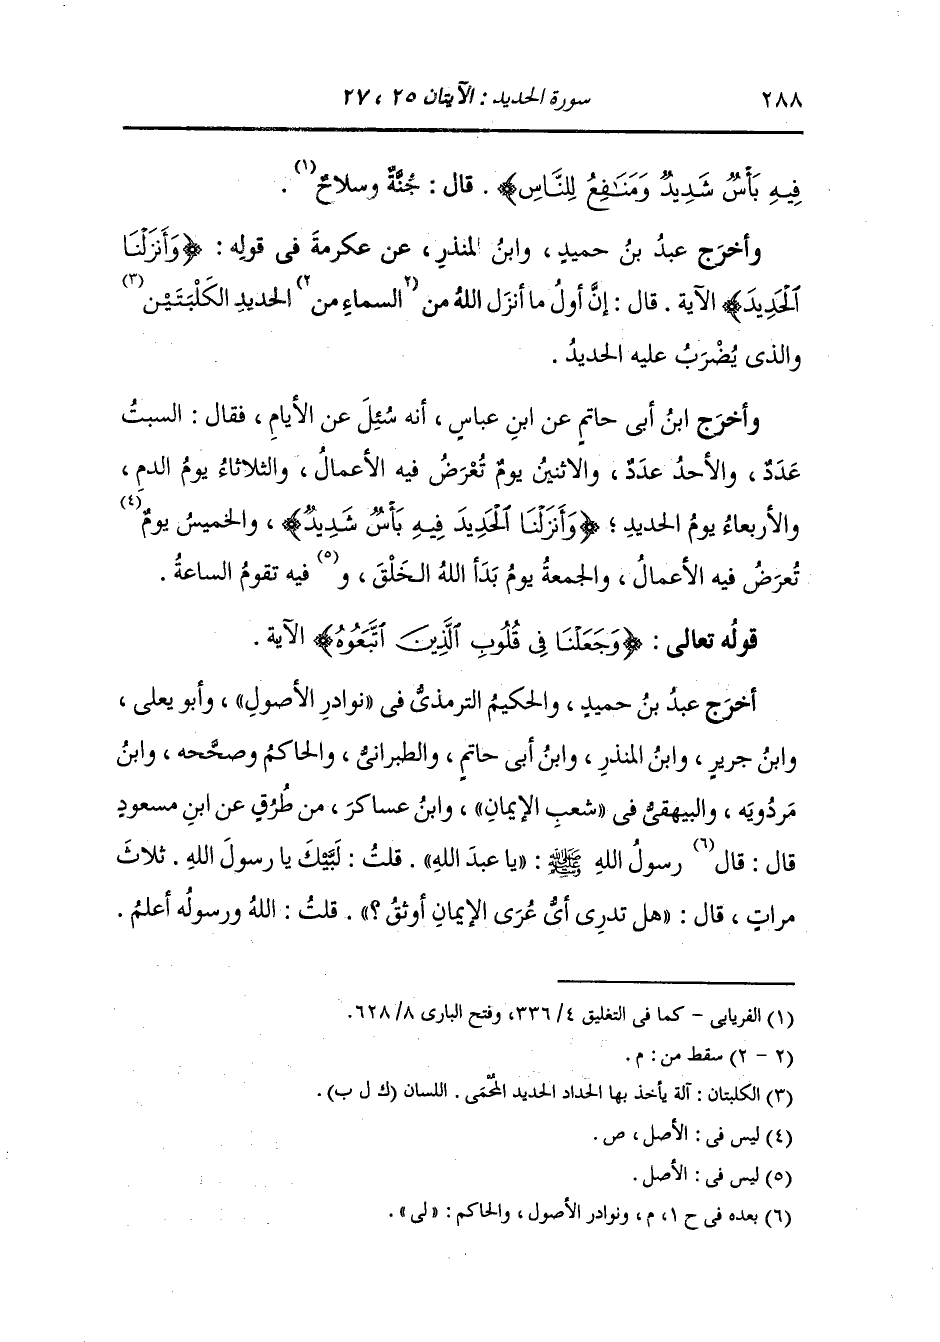 ٢٨٨ سورة الحديد : الآيتان ٢٥ ، ٢٧
فِيهِ بَأْسٌ شَدِيدٌ وَمَنَٰفِعُ لِلنَّاسِ﴾ . قال : جُنَّةٌ وسلاحٌ(١) .
وأخرَج عبدُ بنُ حميدٍ ، وابنُ المنذرِ ، عن عكرمةَ فى قولِه : ﴿وَأَنزَلْنَا
ٱلْحَدِيدَ﴾ الآية . قال : إنَّ أولُ ما أنزَل اللهُ من (٢السماءِ من٢) الحديدِ الكَلْبَتَيْن(٣)
والذى يُضْرَبُ عليه الحديدُ .
وأخرَج ابنُ أبى حاتمٍ عن ابنِ عباسٍ ، أنه سُئِلَ عن الأيامِ ، فقال : السبتُ
عَدَدٌ ، والأحدُ عدَدٌ ، والاثنينُ يومٌ تُعْرَضُ فيه الأعمالُ ، والثلاثاءُ يومُ الدمِ ،
والأربعاءُ يومُ الحديدِ ؛ ﴿وَأَنزَلْنَا ٱلْحَدِيدَ فِيهِ بَأْسٌ شَدِيدٌ﴾ ، والخميسُ يومٌ(٤)
تُعرَضُ فيه الأعمالُ ، والجمعةُ يومُ بَدَأ اللهُ الخَلْقَ ، و(٥) فيه تقومُ الساعةُ .
قولُه تعالى : ﴿وَجَعَلْنَا فِى قُلُوبِ ٱلَّذِينَ ٱتَّبَعُوهُ﴾ الآية .
أخرَج عبدُ بنُ حميدٍ ، والحكيمُ الترمذىُّ فى «نوادرِ الأصولِ» ، وأبو يعلى ،
وابنُ جريرٍ ، وابنُ المنذرِ ، وابنُ أبى حاتمٍ ، والطبرانىُّ ، والحاكمُ وصحَّحه ، وابنُ
مَردُويَه ، والبيهقىُّ فى «شعبِ الإيمانِ» ، وابنُ عساكرَ ، من طُرُقٍ عن ابنِ مسعودٍ
قال : قال(٦) رسولُ اللهِ ﷺ : «يا عبدَ اللهِ» . قلتُ : لَبَّيْكَ يا رسولَ اللهِ . ثلاثَ
مراتٍ ، قال : «هل تدرِى أىُّ عُرَى الإيمانِ أوثقُ ؟» . قلتُ : اللهُ ورسولُه أعلمُ .
(١) الفريابى – كما فى التغليق ٤/ ٣٣٦، وفتح البارى ٨/ ٦٢٨.
(٢ – ٢) سقط من : م .
(٣) الكلبتان : آلة يأخذ بها الحداد الحديد المُحْمَى . اللسان (ك ل ب) .
(٤) ليس فى : الأصل ، ص .
(٥) ليس فى : الأصل .
(٦) بعده فى ح ١، م ، ونوادر الأصول ، والحاكم : «لى» .